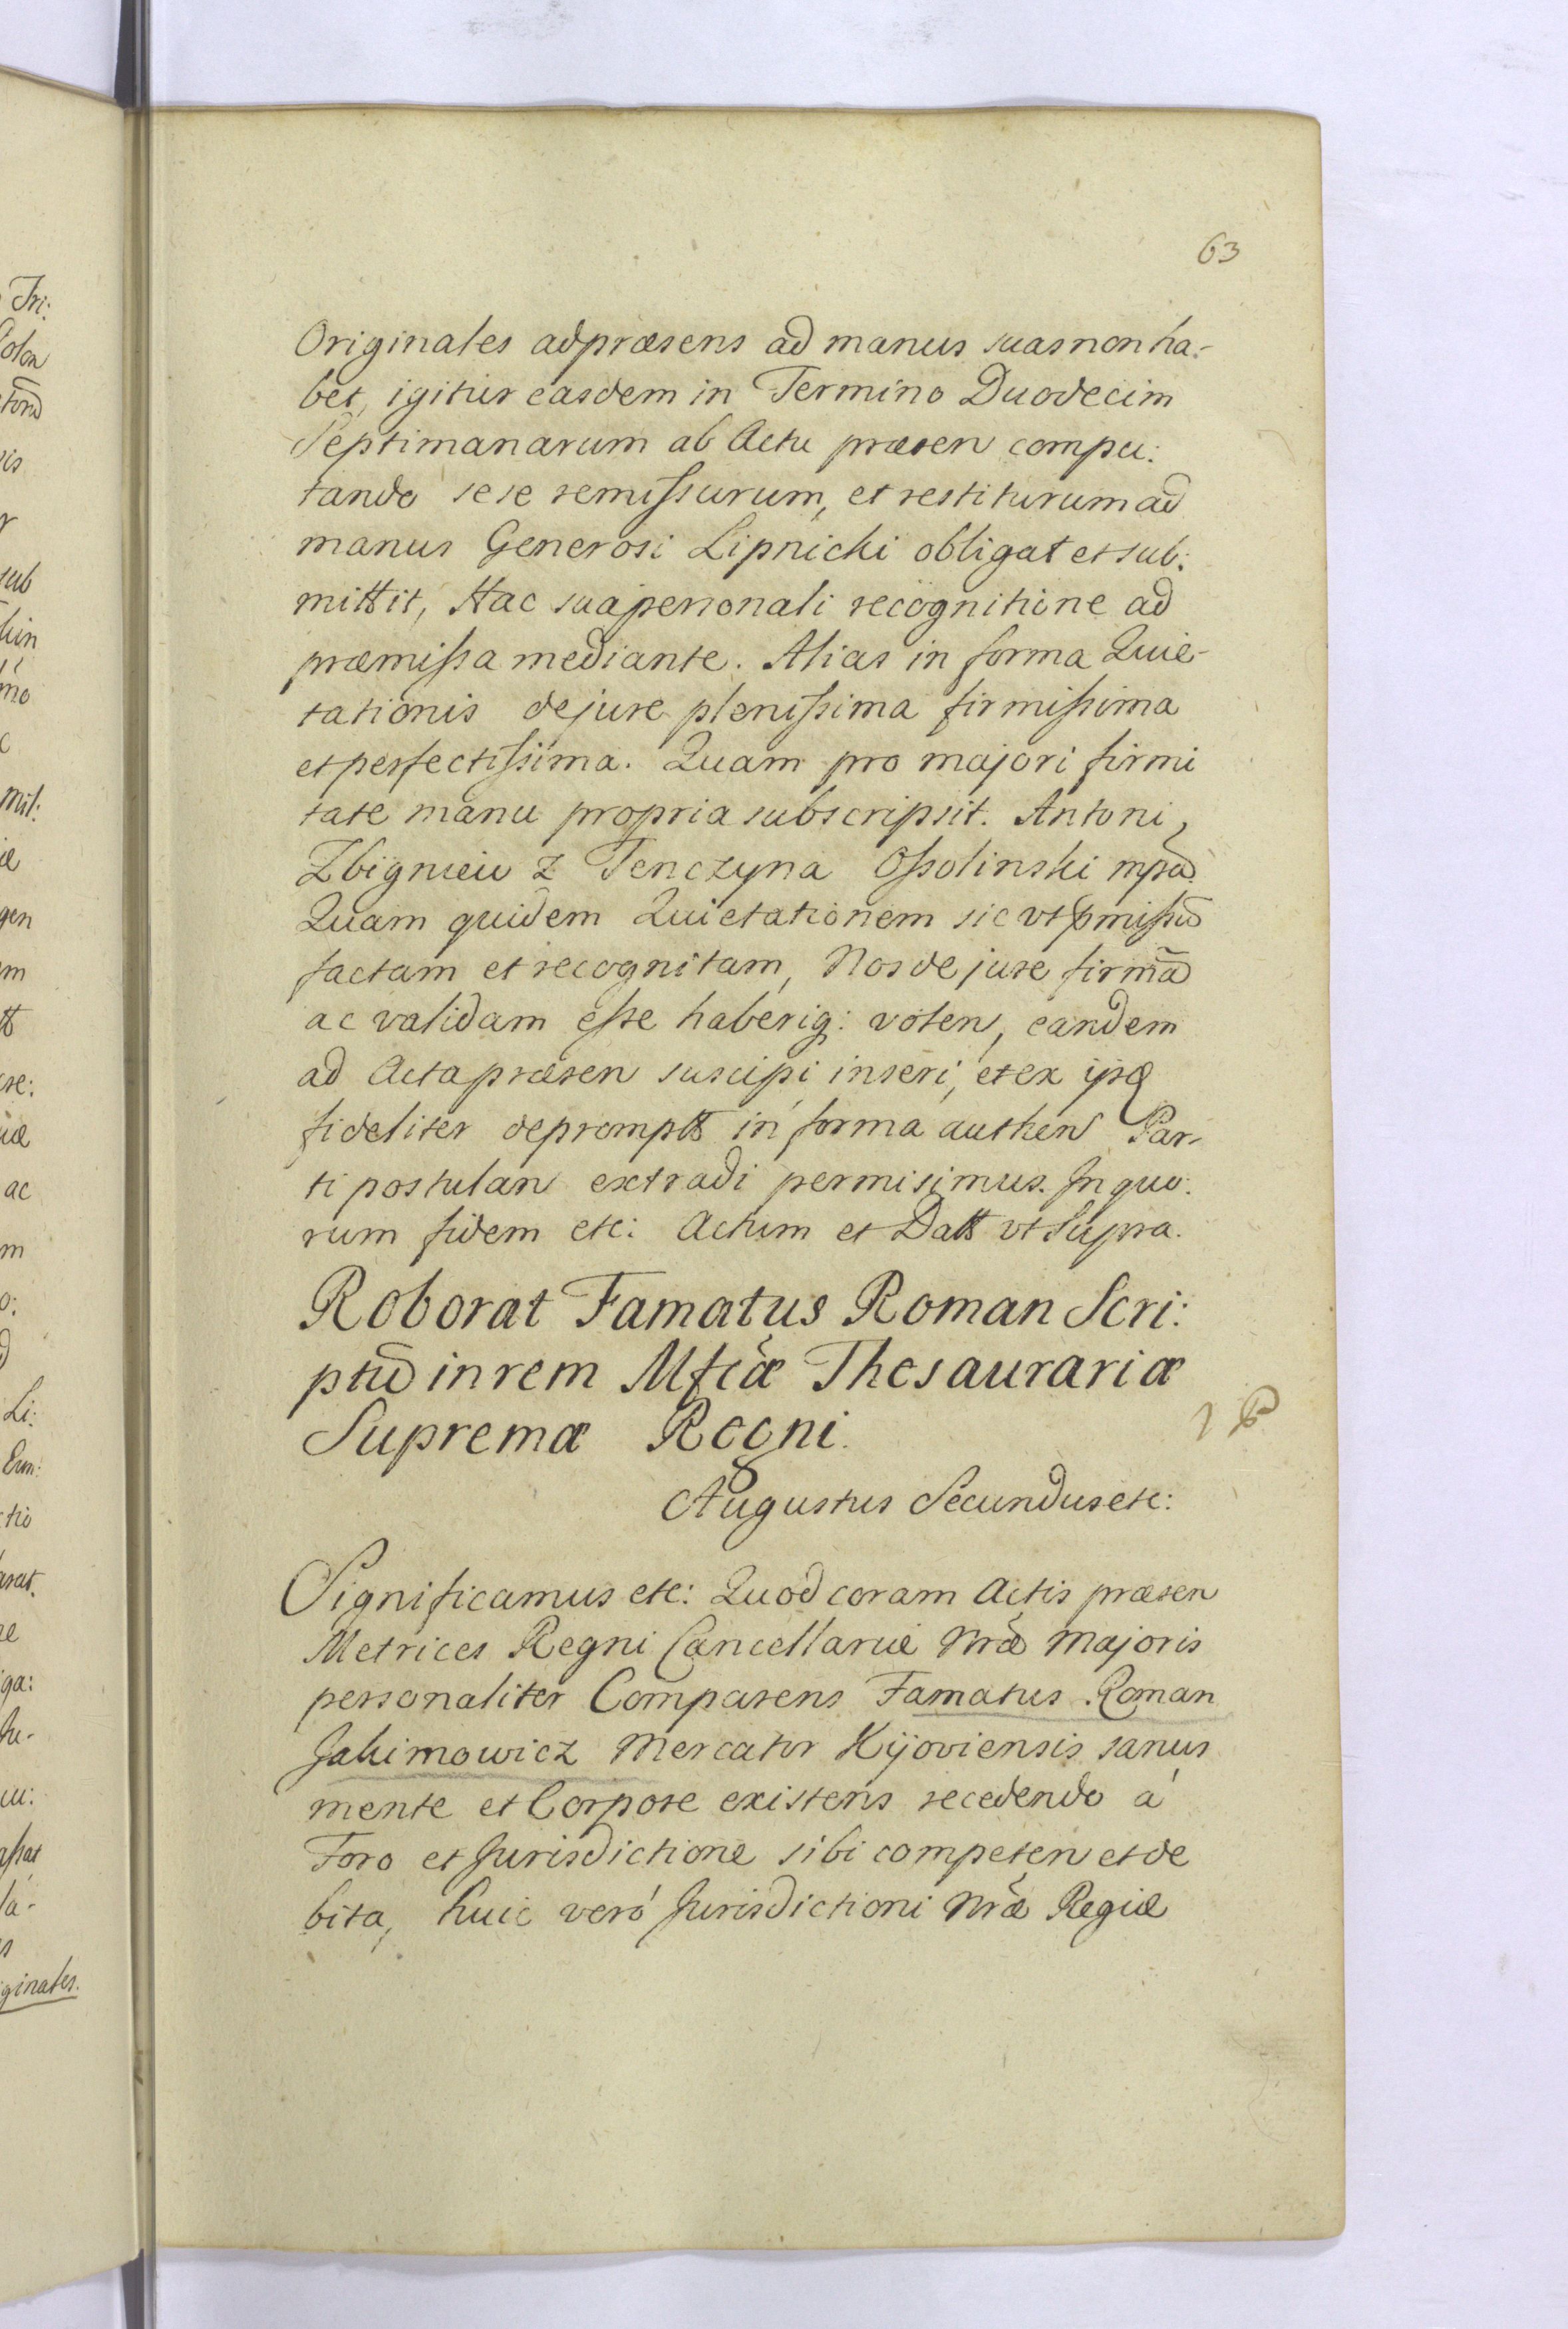 63
Originales adpræsens ad manus suas non ha-
bet, igitur easdem in Termino Duodecim
Septimanarum ab Actu præsen compu:
tando sese remissurum, et restiturum ad
manus Generosi Lipnicki obligat et sub:
mittit, Hac sua personali recognitione ad
præmissa mediante. Alias in forma Quie-
tationis de jure plenissima firmissima
et perfectissima. Quam pro majori firmi
tate manu propria subscripsit. Antoni,
Zbigniew z Tenczyna Ossolinski mpa
Quam quidem Quietationem sic vt pmissũ
factam et recognitam, Nos de jure firmã
ac validam esse haberiq: volen, eandem
ad Acta præsen suscipi inseri, et ex ijs
fideliter deprompt in forma authen Par-
ti postulan extradi permisimus. In quo.
rum fidem etc: Actum et Datt vt Supra.
Roborat Famatus Roman Scri:
ptũ in rem Mfciæ Thesaurariæ
Supremæ Regni.
Augustus Secundus etc:
Significamus etc: Quod coram Actis præsen
Metrices Regni Cancellariæ Nrã Majoris
personaliter Comparens Famatus Roman
Jakimowicz Mercator Kijoviensis sanus
mente et Corpore existens recedendo á
Foro et Jurisdictione sibi competen et de
bita, huic veró Jurisdictioni Nrã Regiæ
Tri:
sub
Mil:
gen
ac
Li:
ginales.